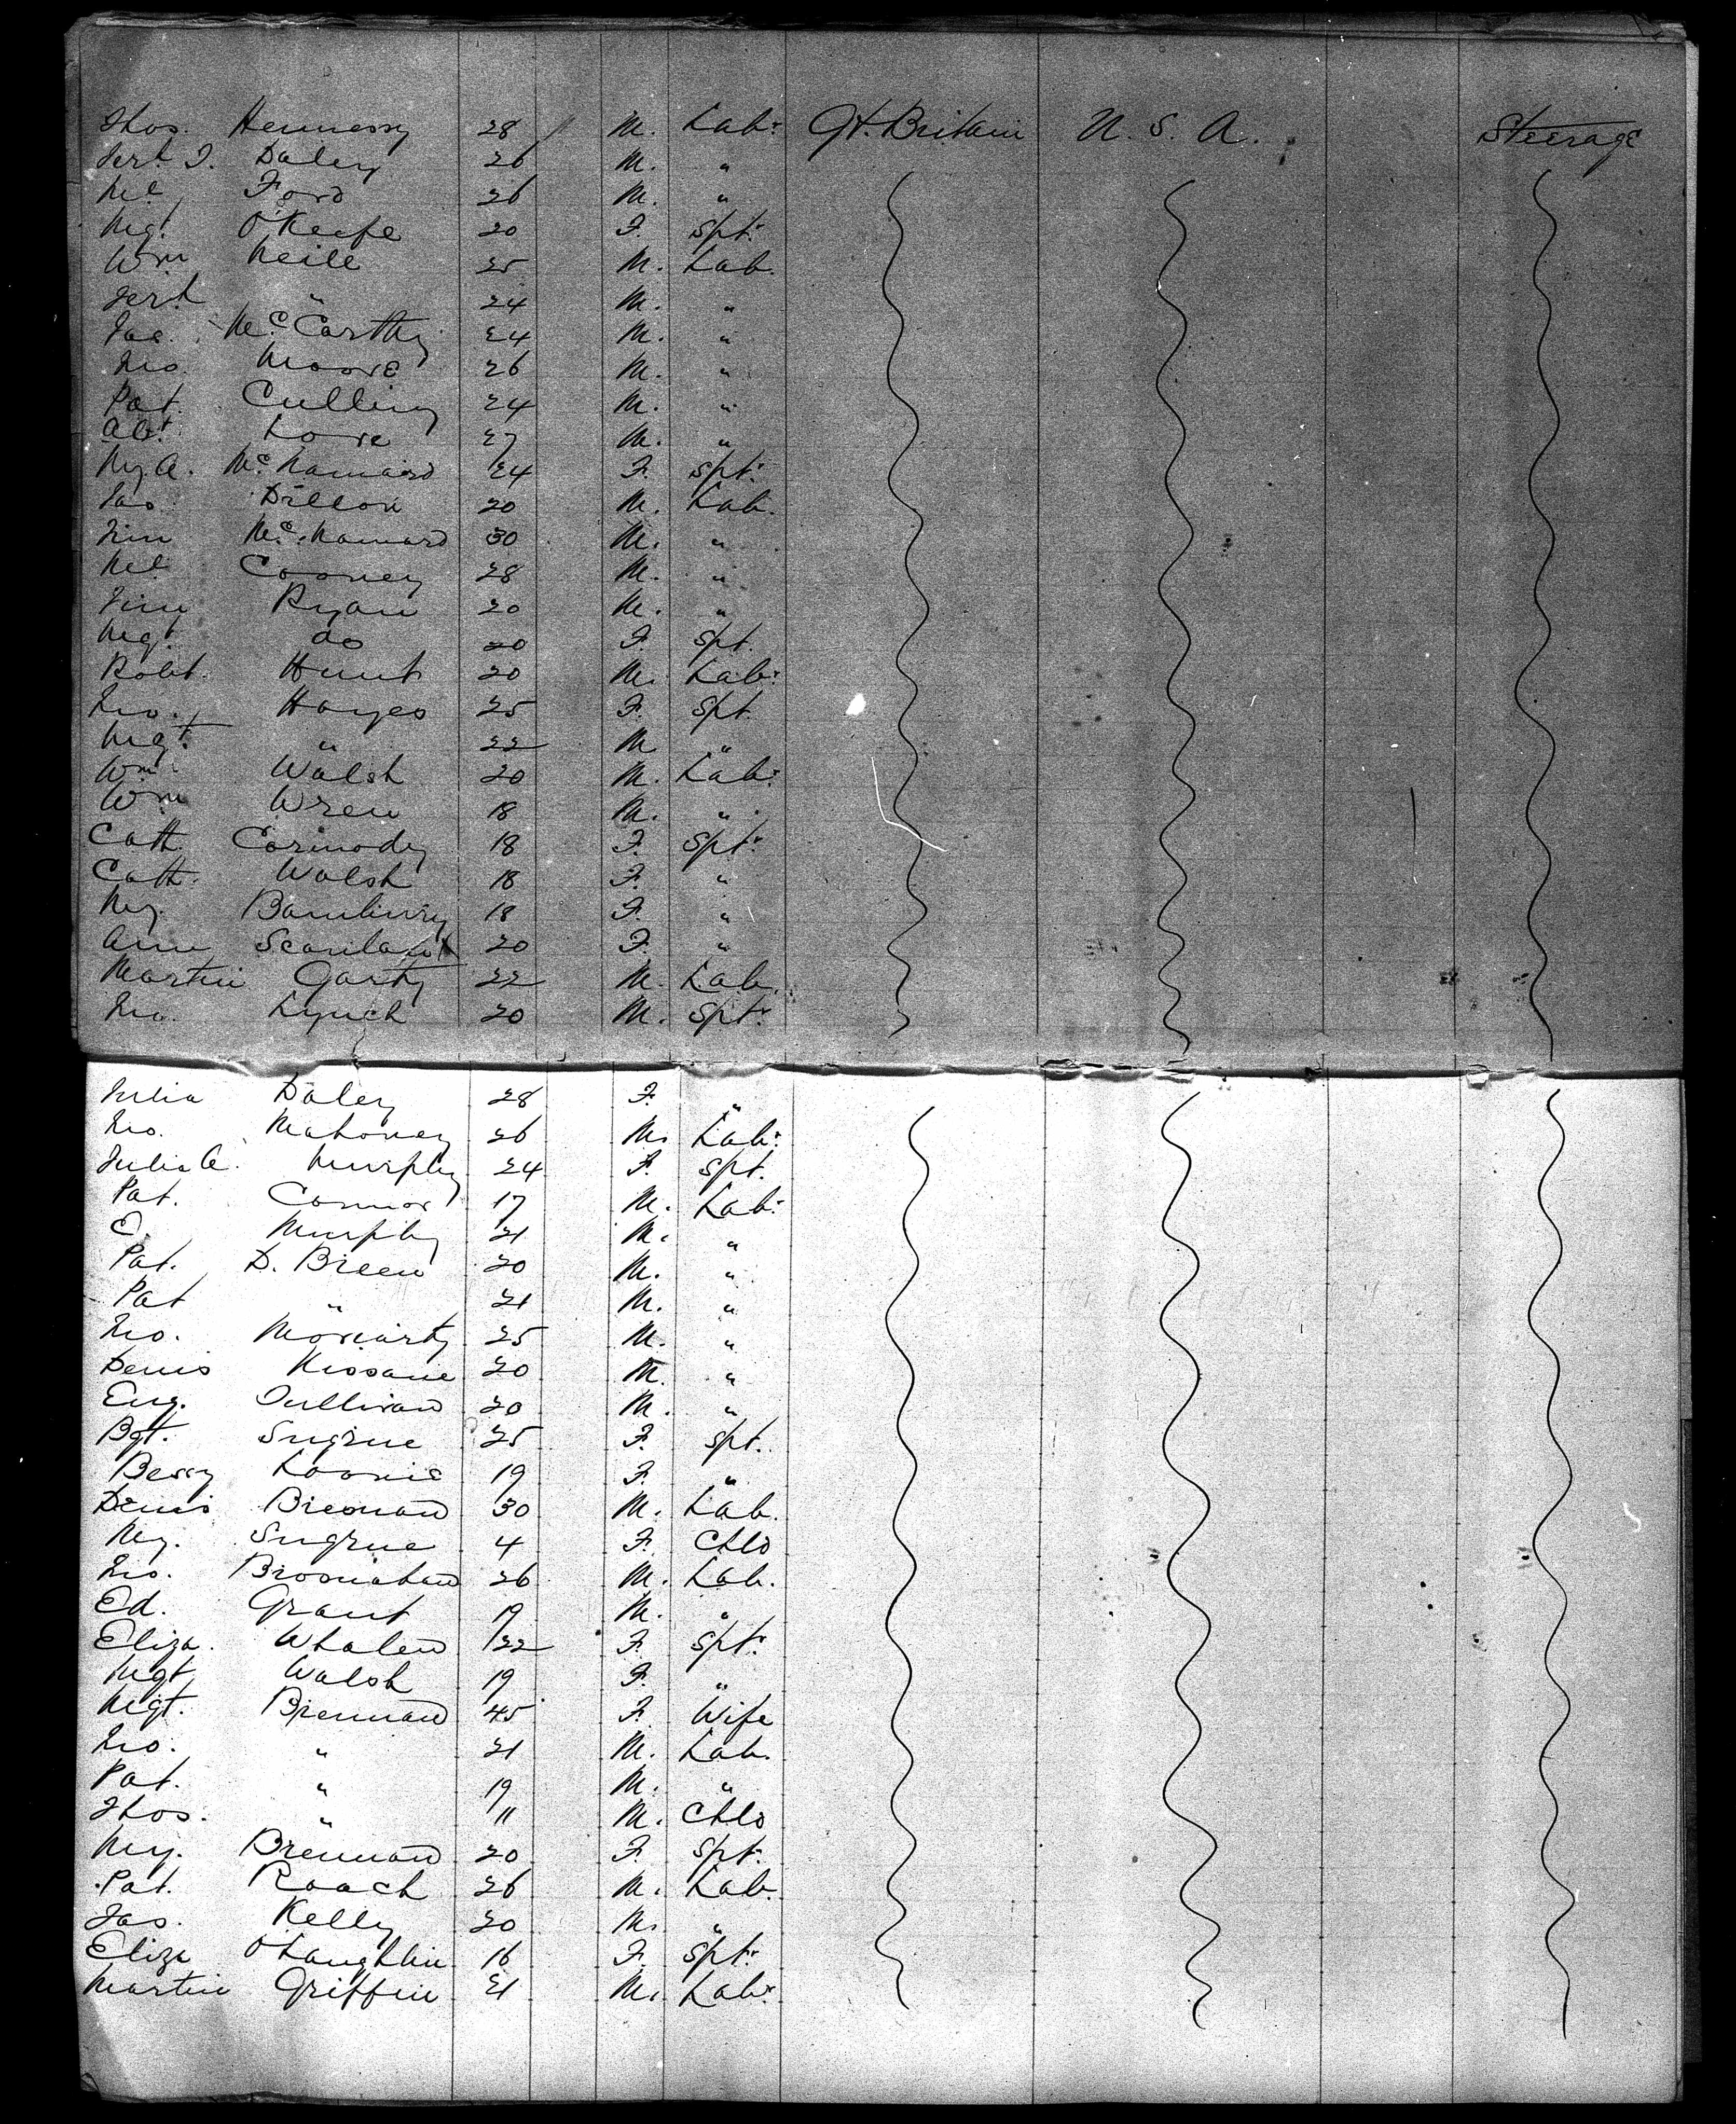 Thos. Hennessy 28 M. Lab: Gt. Britain U. S. A. Steerage
Jerh. J. Daley 26 M. "
Ml Ford 26 M. "
Mgt. O'Keefe 20 F. Spt:
Wm Neill 25 M. Lab.
Jerh " 24 M. "
Jas. McCarthy 24 M. "
Jno. Moore 26 M. "
Pat. Culliny 24 M. "
Abt. 27 M. "
My A. McNamard 24 F. Spt:
Jas. Dillon 20 M. Lab.
Tim McNamard 30 M. "
Ml Cooney 28 M. "
Tim Ryan 20 M. "
Mgt. do 20 F. Spt.
Robt. Hunt 20 M. Lab:
Jno. Hayes 25 F. Spt.
Mgt. " 22 M "
Wm. Walsh 20 M. Lab:
Wm Wren 18 M. "
Cath. Carmody 18 F. Spt:
Cath. Walsh 18 F. "
My. Bambury 18 F. "
Ann Scanlan 20 F. "
Martin Garty 22 M. Lab.
Jno. Lynch 20 M. Spt:
Julia Daley 28 F. "
Jno. Mahoney 26 M. Lab:
Julia A. Murphy 24 F. Spt.
Pat. Connor 17 M. Lab:
Murphy 21 M. "
Pat. D. Breen 20 M. "
Pat " 21 M. "
Jno. Moriarty 25 M. "
Denis Kissane 20 M. "
Eug. Sullivan 20 M. "
Bgt. Sugrue 25 F. Spt.
Bessy Loonie 19 F. "
Denis Bresnand 30 M. Lab.
My. Sugrue 4 F. Chld
Jno. Brosnahand 26 M. Lab.
Ed. Grant 19 M. "
Eliza. Whalend 22 F. Spt:
Mgt Walsh 19 F. "
Mgt. Brennand 45 F. Wife
Jno. " 21 M. Lab.
Pat. " 19 M. "
Thos. " 11 M. Chld
My. Brennand 20 F. Spt.
Pat. Roach 26 M. Lab.
Jas. Kelly 20 M. "
Eliza O'Laughlin 16 F. Spt:
Martin Griffin 21 M. Lab: